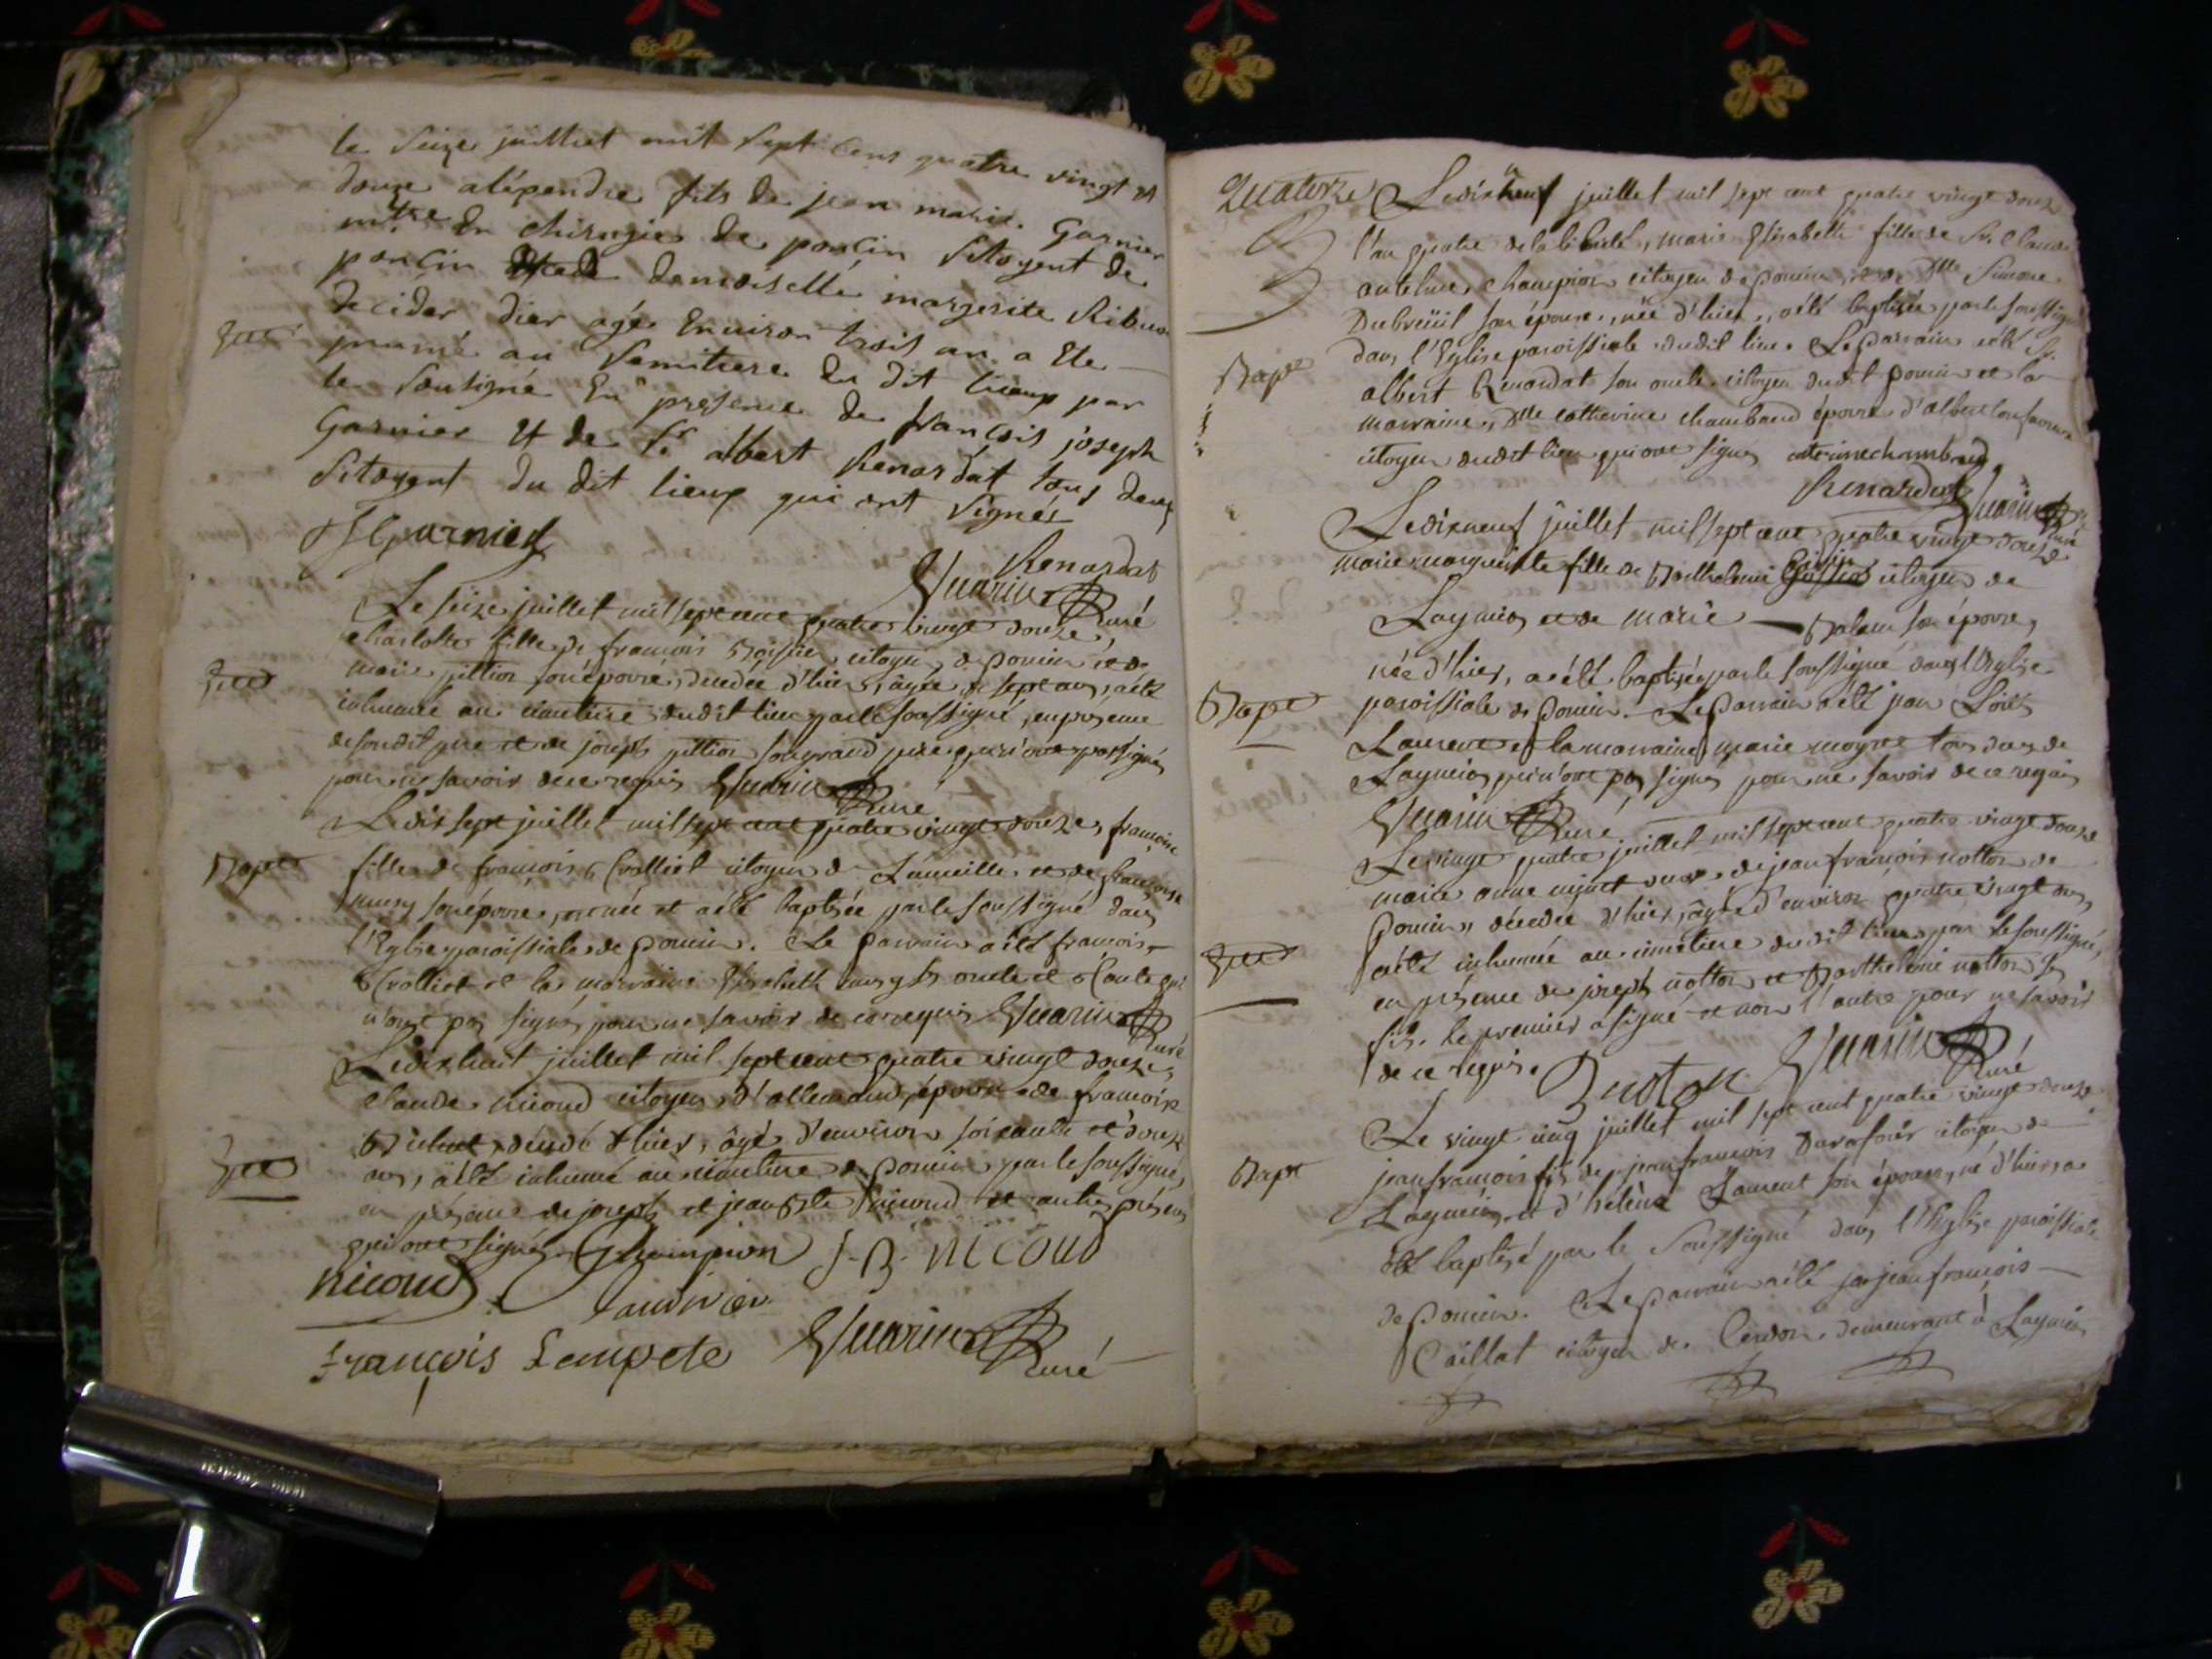 le Seize juilliet mil Sept Cens quatre vingt et
douze aléxendre fits de jean marie Garnier
mtre En chirugie de poncin Sitoyent de
poncin demoiselle margerite Ribu
decider dier agé Environ trois an a Ete
jnumé au Semitiere du dit lieux par
le Sousigné En presence de françois joseph
Garnier Et de Sr albert Renardat tous deux
Sitoyent du dit lieux qui ont Signés
Garnier
Renardat
Guarin Curé
Le seize juillet mil sept cent quatre vingt douze,
charlotte fille de francois citoyen de Poncin et de
marie pittion son épouse, décédée d'hier, âgée de sept ans, a été
inhumée au cimetiere dudit lieu par le soussigné, en présence
de sondit pere et de joseph pittion son grand pere qui n'ont pas signés
pour ne savoir de ce requis Guarin Curé
Le dix sept juillet mil sept cent quatre vingt douze, françoise
fille de francois Crolliet citoyen de et de françoise
son épouse, née et a été baptisée par le soussigné dans
Bapt
l'Eglise paroissiale de Poncin. Le parrain a été francois
Crolliet et la marraine Elisabeth oncle et tante qui
n'ont pas signés pour ne savoir de ce requis Guarin Curé
Le dix huit juillet mil sept cent quatre vingt douze,
claude nicoud citoyen d'allemand, époux de francoise
décédé d'hier, âgé d'environ soixante et douze
ans, a été inhumé au cimetiere de Poncin par le soussigné,
en présence de joseph et jean Bte nicoud et autres présens
qui ont signés Champion J. B. NICOUD
nicoud
françois Lempete Guarin Curé
Quatorze
Le dix neuf juillet mil sept cent quatre vingt douze
l'an quatre de la liberté, marie Elisabeth fille de Sr. Claude
antelme champion citoyen de poncin et de Dlle Simone
Dubreüil son épouse, née d'hier, a été baptisée par le soussigné
dans l'Eglise paroissiale dudit lieu. Le Parrain a été Sr.
Bapt
albert Renardat son oncle citoyen dudit poncin et la
marraine Dlle catherine chamband épouse d'albert
citoyen dudit lieu qui ont signés caterine chamband
Renardat Guarin Curé
Le dix neuf juillet mil sept cent quatre vingt douze
marie marguerite fille de Barthelemi citoyen de
Laymia et de marie Balam son épouse,
née d'hier, a été baptisée par le soussigné dans l'Eglise
Bapt
paroissiale de Poncin. Le Parrain a été jean Loüis
Laurent et la marraine marie moyret tous deux de
Laymia qui n'ont pas signés pour ne savoir de ce requis
Guarin Curé
Le vingt quatre juillet mil sept cent quatre vingt douze
marie anne veuve de jean francois notton de
Poncin, décédée d'hier, âgée d'environ quatre vingt ans
a été inhumée au cimetiere dudit lieu par le soussigné,
en présence de joseph notton et Barthelemi notton ses
fils. le premier a signé et non l'autre pour ne savoir
de ce requis. Guarin Curé
Le vingt cinq juillet mil sept cent quatre vingt douze
Bapt
jean francois fils de jean francois citoyen de
Laymia et d'hélène Laurent son épouse, né d'hier, a
été baptisé par le Soussigné dans l'Eglise paroissiale
de Poncin. Le parrain a été jean francois
Caillat citoyen de Cerdon demeurant à Laymia